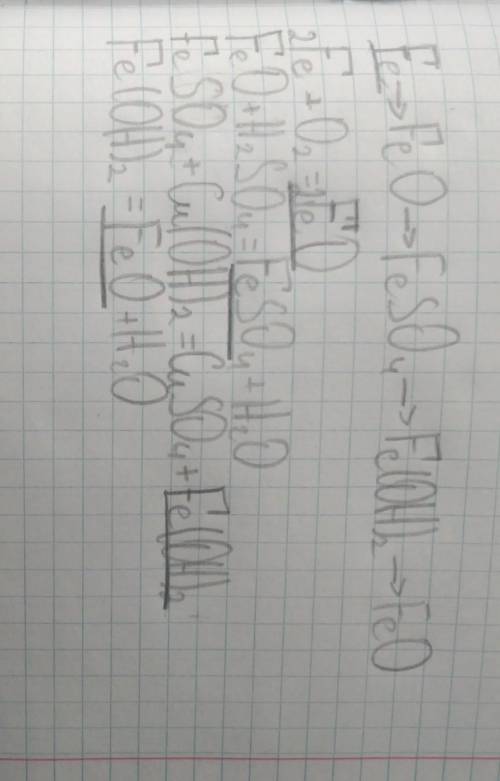 Fe→FeO→FeSO₄→Fe(OH)₂→FeO
2Fe+O₂=2FeO
FeO+H₂SO₄=FeSO₄+H₂O
FeSO₄+Cu(OH)₂=CuSO₄+Fe(OH)₂
Fe(OH)₂=FeO+H₂O